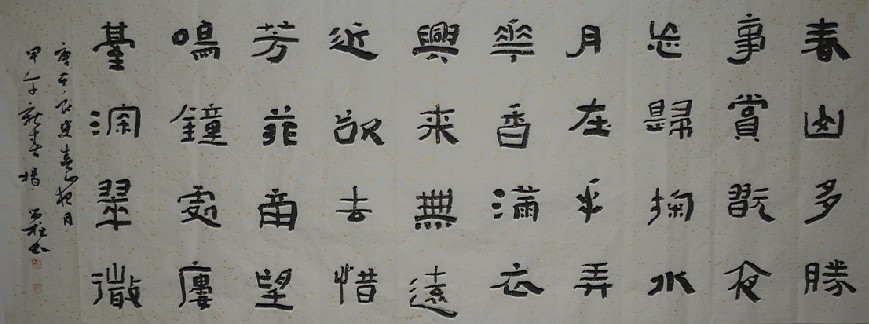 春山多勝
事賞翫夜
忘歸掬水
月在手弄
華香滿衣
興来無遠
近欲去惜
芳菲南望
鳴鐘處廔
臺深翠微
唐于良史春山夜月
甲午新春 书